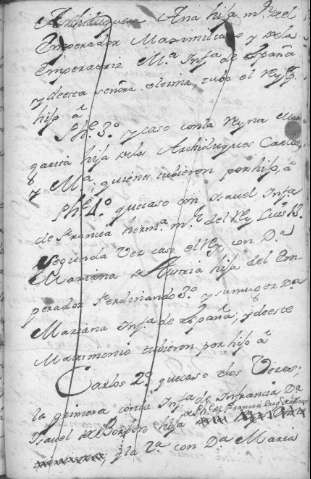 Archiduquesa Ana hija m.r del
Emperador Maximiliano y dela
Emperatriz M.a Infa de España
y deesta señora ultima tubo el Rey
hijo á
Phe. 3.º y caso conla Reyna Mar
garita hija delos Archiduques Carlos
y M.a quienes tubieron por hijo á
Phe. 4.º que caso con Isavel Infa
de Francia herm.a m.r del Rey Luis 13.
segunda vez caso el Rey con D.a
Mariana de Austria hija del Em
perador Ferdinando 3.º y su muger D.a
Mariana Infa de España, y deeste
Matrimonio tubieron por hijo á
Carlos 2.º que caso dos Veces;
la primera conla Infa de Francia Da
Isavel de Borbon hija de
y la 2.a con D.a Maria